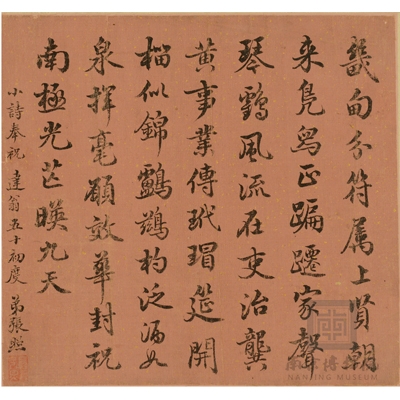 畿甸分符属上賢朝
来鳧舄正蹁躚家聲
琴鶴風流在吏治龔
黄事業傳玳瑁筵開
榴似錦鸕鷀杓泛酒如
泉揮毫願效華封祝
南極光芒暎九天
小詩奉祝
達翁五十初度 弟張照
南京博物院
NANJING MUSEUM